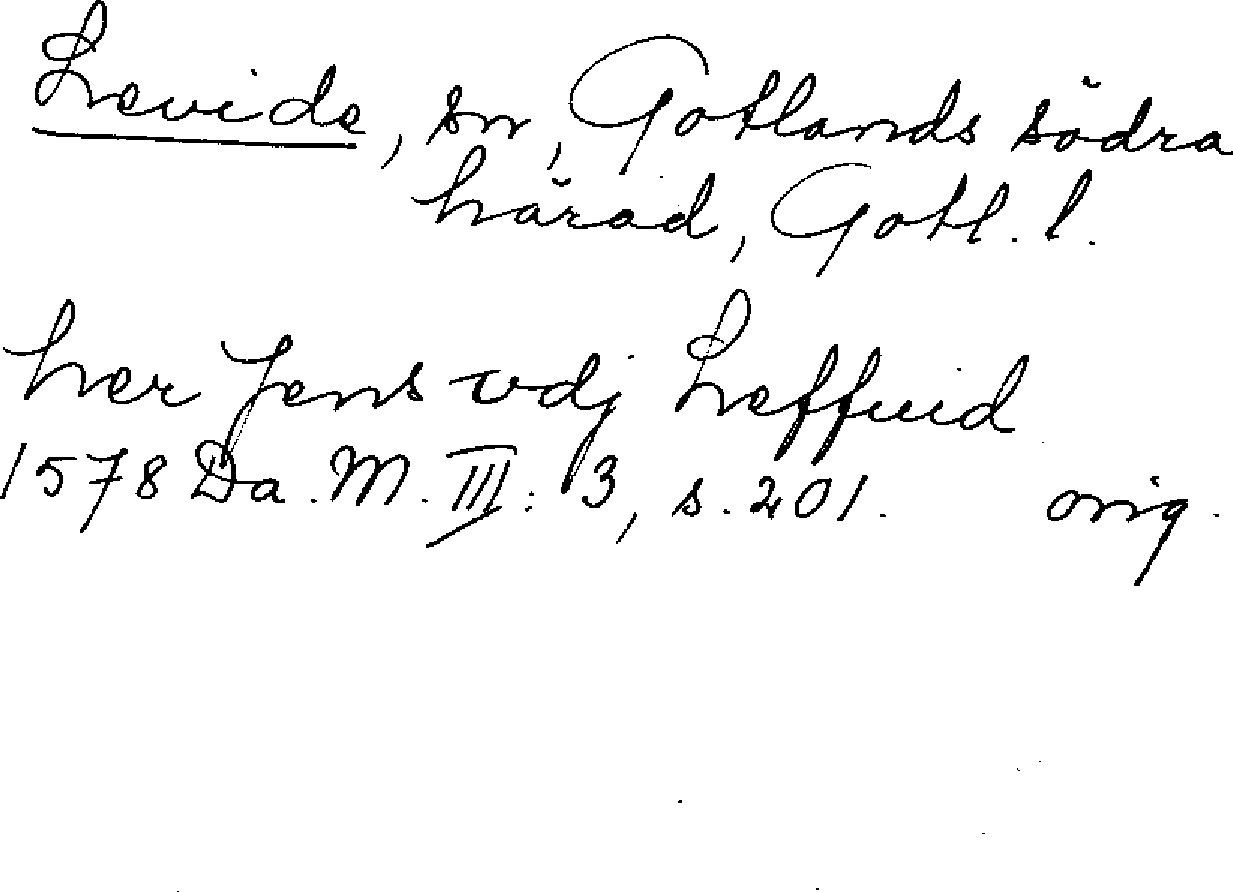 Levide, sn, Gotlands södra
härad, Gotl. l.
her Jens vdj Leffuid
1578 Da. M. III: 3, s. 201. orig.